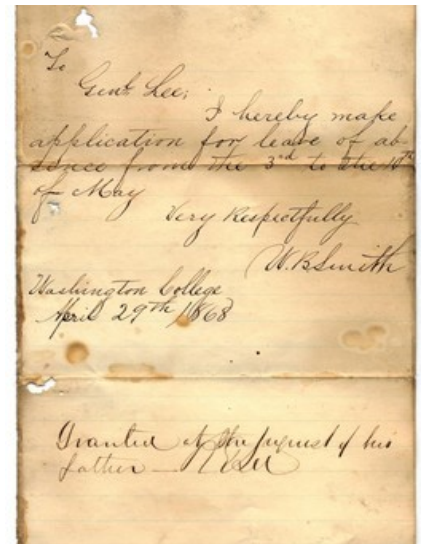 To
Genl. Lee;
I hereby make
application for leave of ab-
sence from the 3rd to the 10th
of May
Very Respectfully
W.B. Smith
Washington College
April 29th 1868
Granted at the request of his
father — RELee